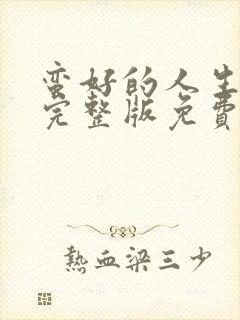 蛮好的人生
完整版免費
熱血梁三少